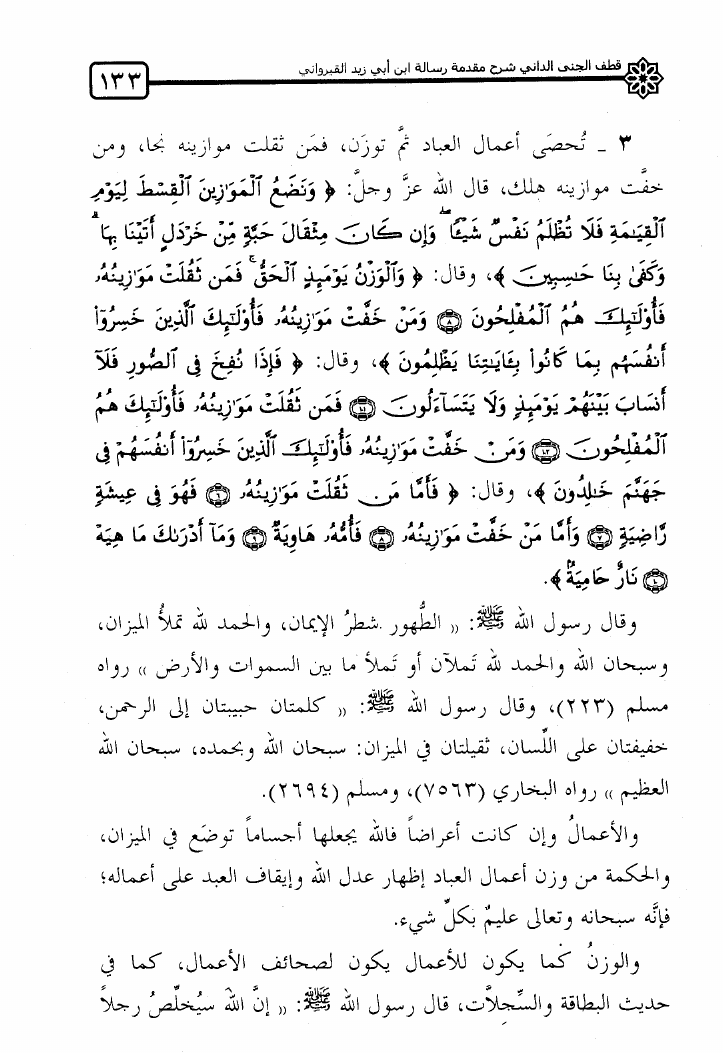 قطف الجنى الداني شرح مقدمة رسالة ابن أبي زيد القيرواني
١٣٣
٣ ـ تُحصَى أعمال العباد ثمَّ توزَن، فمَن ثقلت موازينه نجا، ومن
خفَّت موازينه هلك، قال الله عزَّ وجلَّ: ﴿ وَنَضَعُ ٱلْمَوَٰزِينَ ٱلْقِسْطَ لِيَوْمِ
ٱلْقِيَٰمَةِ فَلَا تُظْلَمُ نَفْسٌ شَيْـًٔا ۖ وَإِن كَانَ مِثْقَالَ حَبَّةٍ مِّنْ خَرْدَلٍ أَتَيْنَا بِهَا ۗ
وَكَفَىٰ بِنَا حَٰسِبِينَ ﴾، وقال: ﴿ وَٱلْوَزْنُ يَوْمَئِذٍ ٱلْحَقُّ ۚ فَمَن ثَقُلَتْ مَوَٰزِينُهُۥ
فَأُو۟لَٰٓئِكَ هُمُ ٱلْمُفْلِحُونَ ۝٨ وَمَنْ خَفَّتْ مَوَٰزِينُهُۥ فَأُو۟لَٰٓئِكَ ٱلَّذِينَ خَسِرُوٓا۟
أَنفُسَهُم بِمَا كَانُوا۟ بِـَٔايَٰتِنَا يَظْلِمُونَ ﴾، وقال: ﴿ فَإِذَا نُفِخَ فِى ٱلصُّورِ فَلَآ
أَنسَابَ بَيْنَهُمْ يَوْمَئِذٍ وَلَا يَتَسَآءَلُونَ ۝١٠١ فَمَن ثَقُلَتْ مَوَٰزِينُهُۥ فَأُو۟لَٰٓئِكَ هُمُ
ٱلْمُفْلِحُونَ ۝١٠٢ وَمَنْ خَفَّتْ مَوَٰزِينُهُۥ فَأُو۟لَٰٓئِكَ ٱلَّذِينَ خَسِرُوٓا۟ أَنفُسَهُمْ فِى
جَهَنَّمَ خَٰلِدُونَ ﴾، وقال: ﴿ فَأَمَّا مَن ثَقُلَتْ مَوَٰزِينُهُۥ ۝٦ فَهُوَ فِى عِيشَةٍ
رَّاضِيَةٍ ۝٧ وَأَمَّا مَنْ خَفَّتْ مَوَٰزِينُهُۥ ۝٨ فَأُمُّهُۥ هَاوِيَةٌ ۝٩ وَمَآ أَدْرَىٰكَ مَا هِيَهْ
۝١٠ نَارٌ حَامِيَةٌۢ ﴾.
وقال رسول الله ﷺ: (( الطُّهور شطرُ الإيمان، والحمد لله تملأُ الميزان،
وسبحان الله والحمد لله تَملآن أو تَملأ ما بين السموات والأرض )) رواه
مسلم (٢٢٣)، وقال رسول الله ﷺ: (( كلمتان حبيبتان إلى الرحمن،
خفيفتان على اللِّسان، ثقيلتان في الميزان: سبحان الله وبحمده، سبحان الله
العظيم )) رواه البخاري (٧٥٦٣)، ومسلم (٢٦٩٤).
والأعمالُ وإن كانت أعراضاً فالله يجعلها أجساماً توضَع في الميزان،
والحكمة من وزن أعمال العباد إظهار عدل الله وإيقاف العبد على أعماله؛
فإنَّه سبحانه وتعالى عليمٌ بكلِّ شيء.
والوزنُ كما يكون للأعمال يكون لصحائف الأعمال، كما في
حديث البطاقة والسِّجلاَّت، قال رسول الله ﷺ: (( إنَّ اللهَ سيُخلِّصُ رجلاً